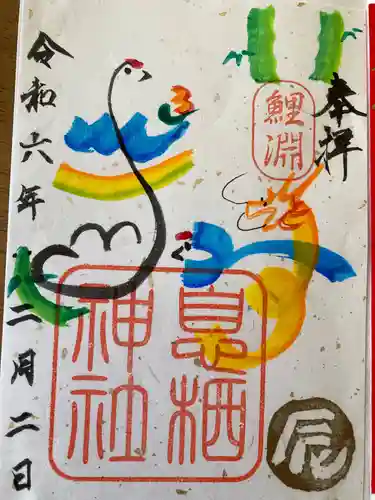 奉拝
鯉淵
息栖
神社
辰
令和六年二月二日